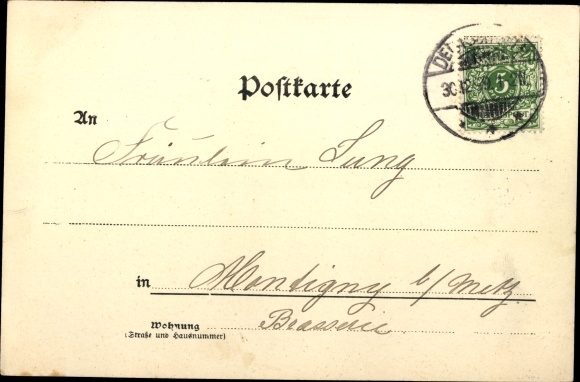 Postkarte
5
30.12
An
Fräulein Jung
in Montigny b/Metz
Wohnung Brasserie
(Straße und Hausnummer)